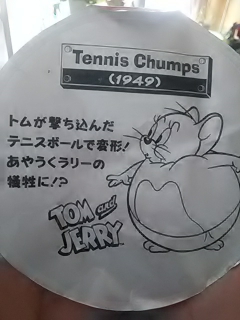 Tennis Chumps
(1949)
トムが撃ち込んだ
テニスボールで変形!
あやうくラリーの
犠牲に!?
TOM and
JERRY